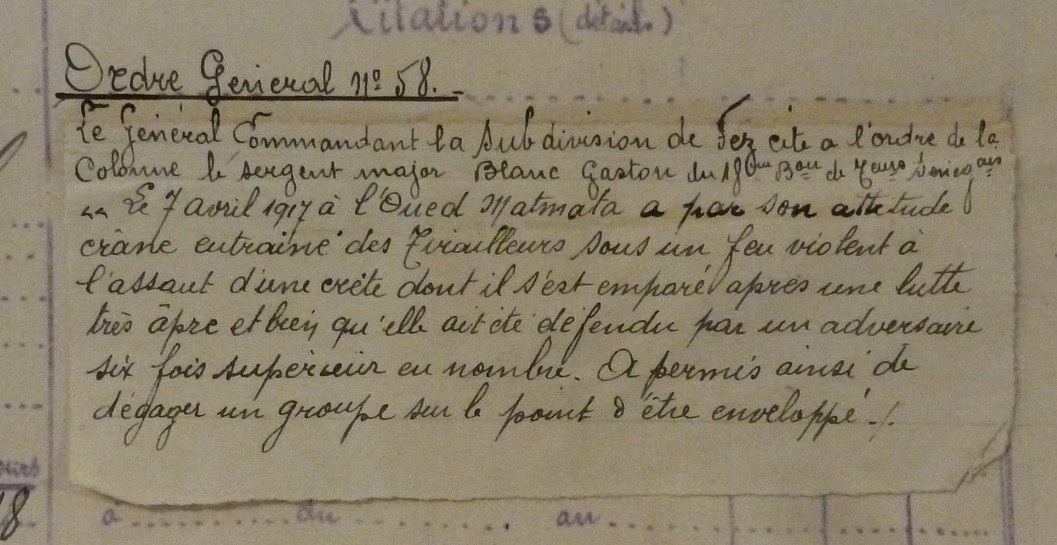 Citations (détails)
Ordre Général nº 58.
Le Général Commandant la Subdivision de Fez cite a l'ordre de la
Colonne le sergent major Blanc Gaston du 18eme Bon de Teurs Sénégais
"" Le 7 avril 1917 à l'Oued Matmata a par son attitude
crâne entrainé des Tirailleurs sous un feu violent à
l'assaut d'une crête dont il s'est emparé après une lutte
très âpre et bien qu'elle ait été défendu par un adversaire
six fois supérieur en nombre. A permis ainsi de
dégager un groupe sur le point d'être enveloppé./.
8
a du au